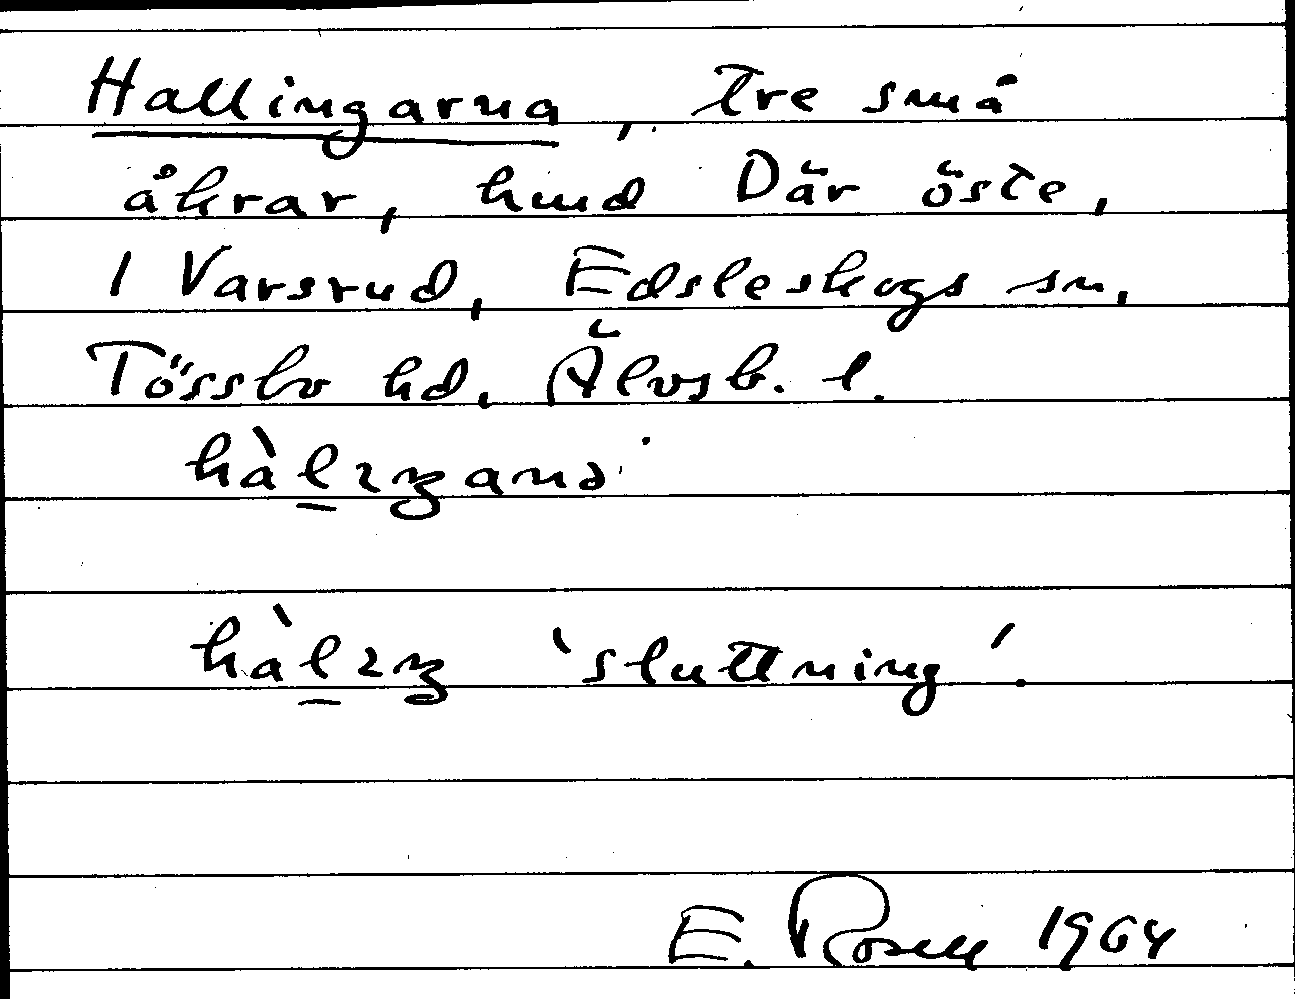 Hallingarna, tre små
åkrar, hmd Där öste,
I Varsrud, Edsleskogs sn,
Tössbo hd. Älvsb. l.
hàlıŋana
hàlıŋ 'sluttning'.
E. Rosell 1964